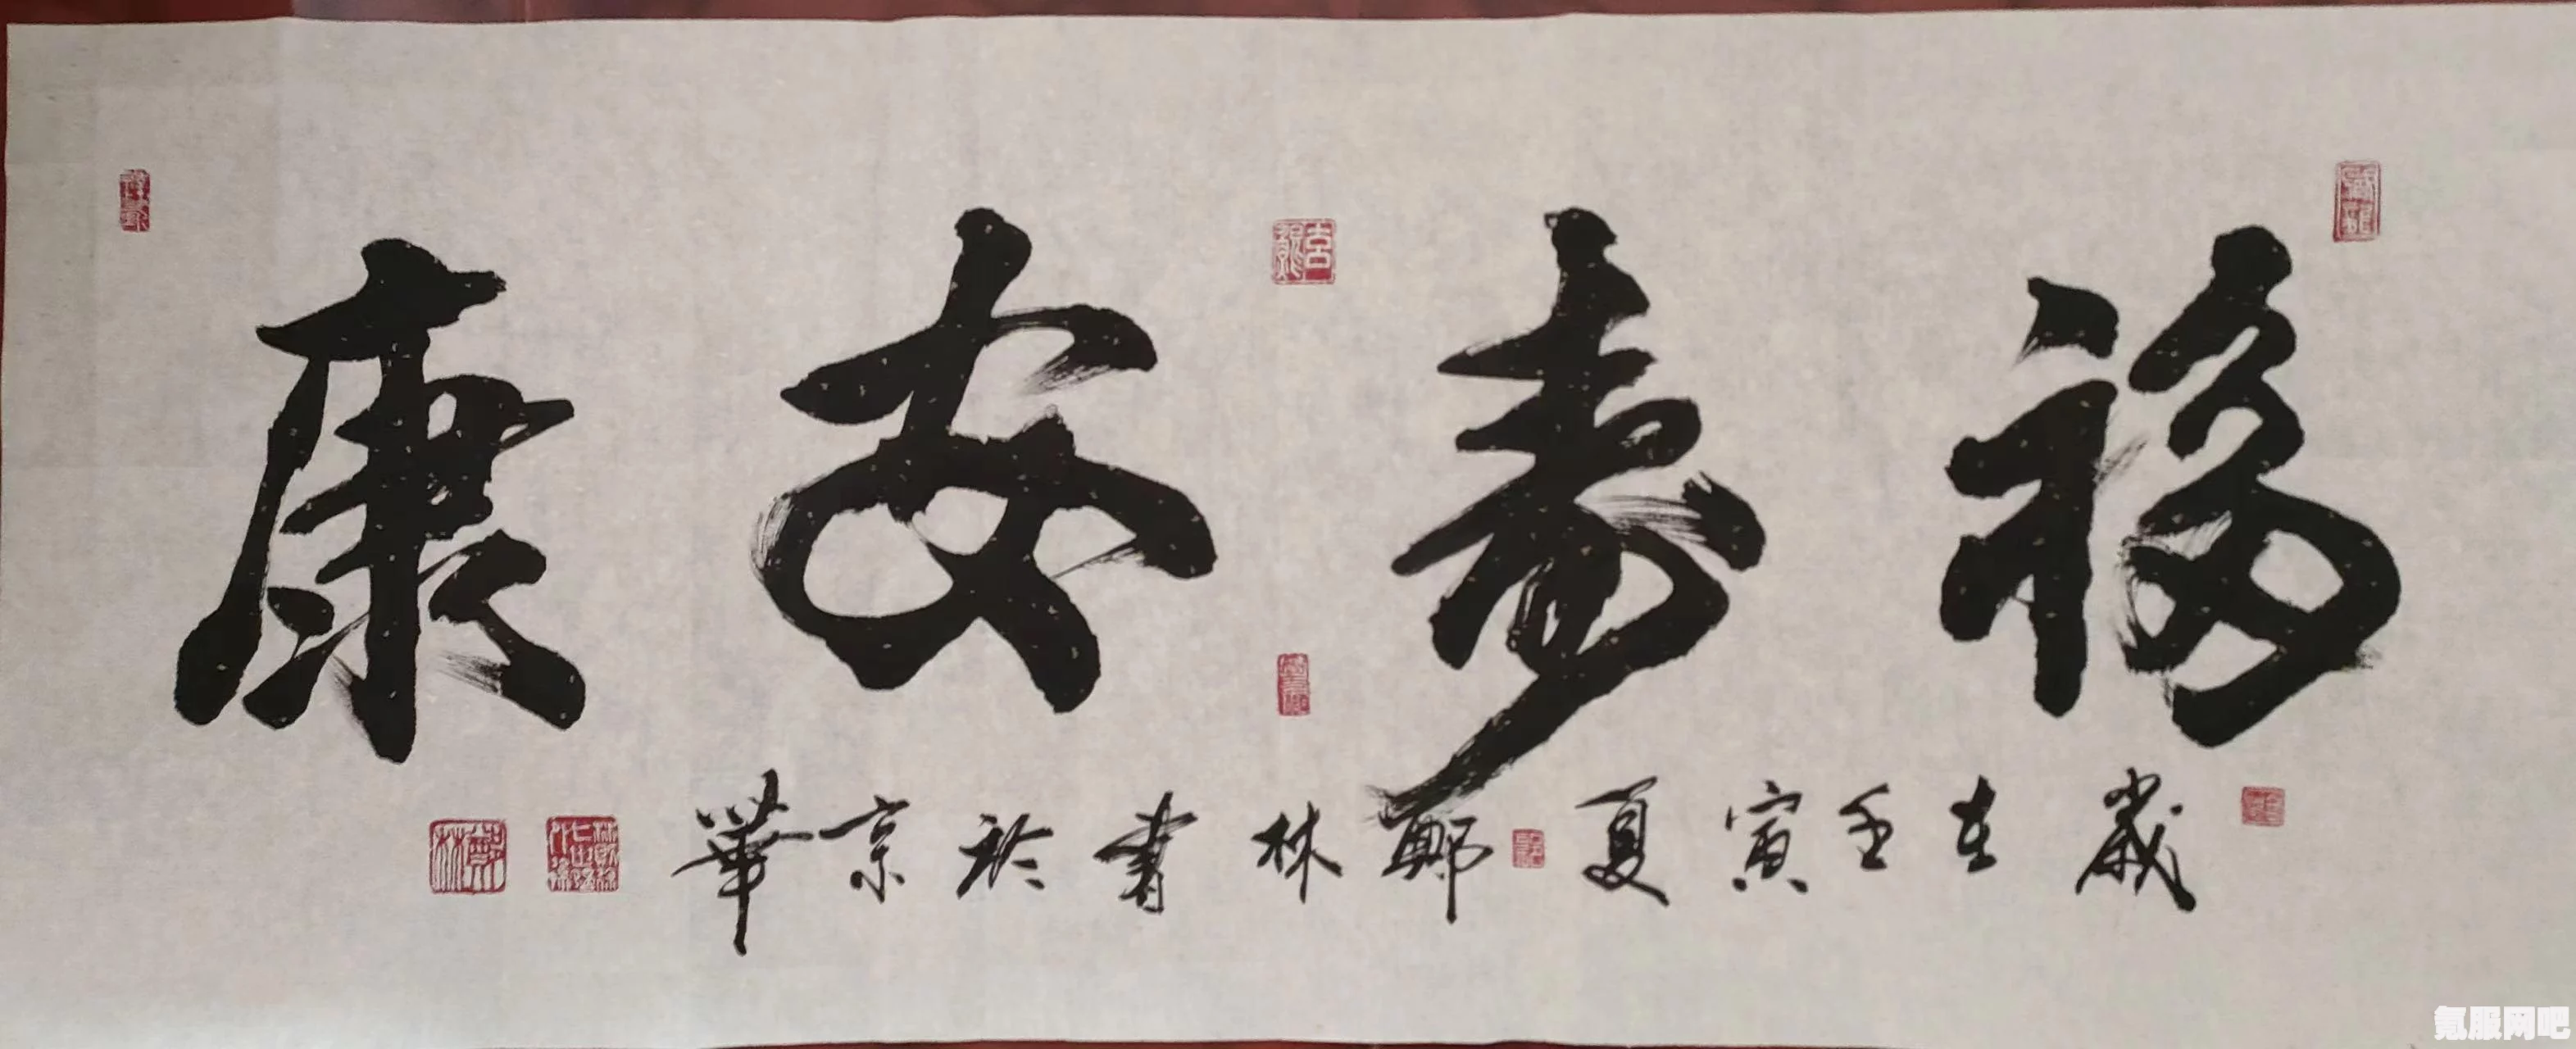 福壽安康
歲在壬寅夏鄭林書於京華
鄭林
氪服网吧